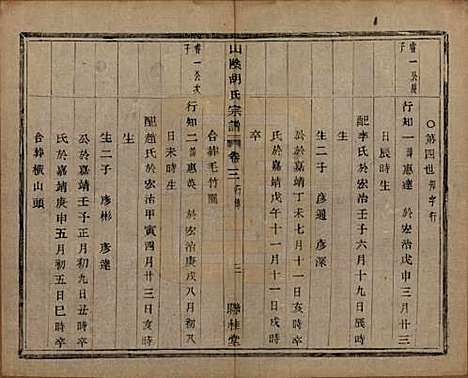 ○第四世 知字行
睿一公長子
行知一諱惠達 於宏治戊申三月廿三
日辰時生
配李氏於宏治壬子六月十九日辰時
生二子 彥通 彥深
公於嘉靖丁未七月十一日亥時
氏於嘉靖戊午十一月十一日戌時
卒
合葬毛竹園
山陰胡氏宗譜 卷三 行傳 三 聯桂堂
睿一公次子
行知二諱惠英 於宏治庚戌八月初八
日未時生
配趙氏於宏治甲寅四月廿三日亥時
生
生二子 彥彬 彥達
公於嘉靖壬子正月初九日丑時卒
氏於嘉靖庚申五月初五日巳時卒
合葬橫山頭